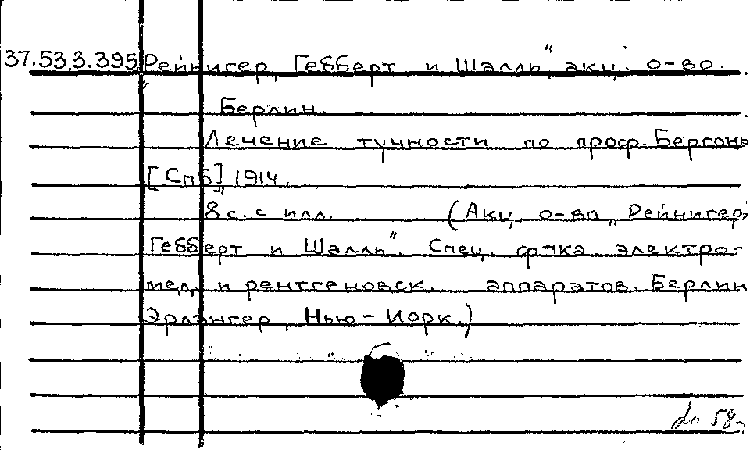 37.53.3.395 Рейнигер, Гебберт и Шалль", акц. о-во.
Берлин.
Лечение тучности по проф. Бергонье
[Спб] 1914.
8 с. с илл. (Акц. о-во „Рейнигер,
Гебберт и Шалль". Спец. ф-ка электро-
мед. и рентгеновск. аппаратов. Берлин
Эрланген, Нью-Йорк.)
58